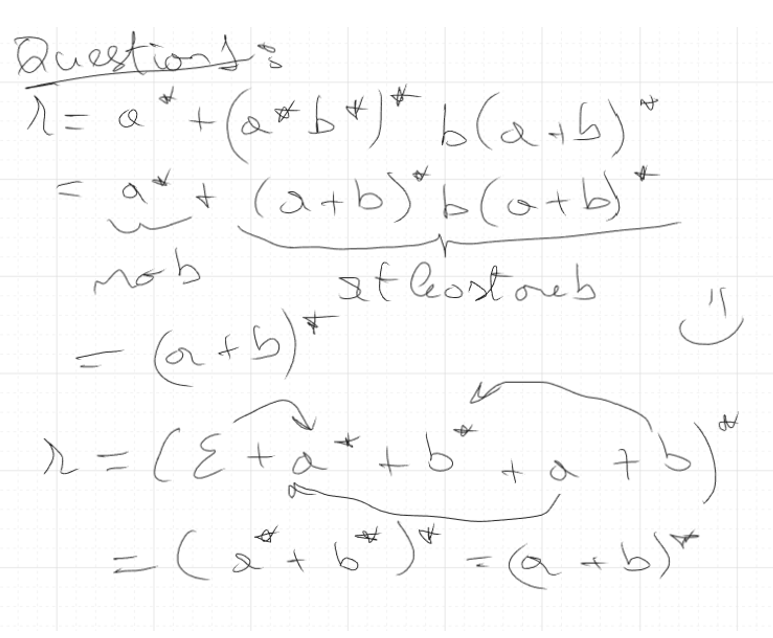 Questions:
r = a* + (a*b*)* b(a+b)*
= a* + (a+b)* b(a+b)*
no b at least one b
= (a+b)*
r = (ε + a* + b* + a + b)*
= (a* + b*)* = (a+b)*